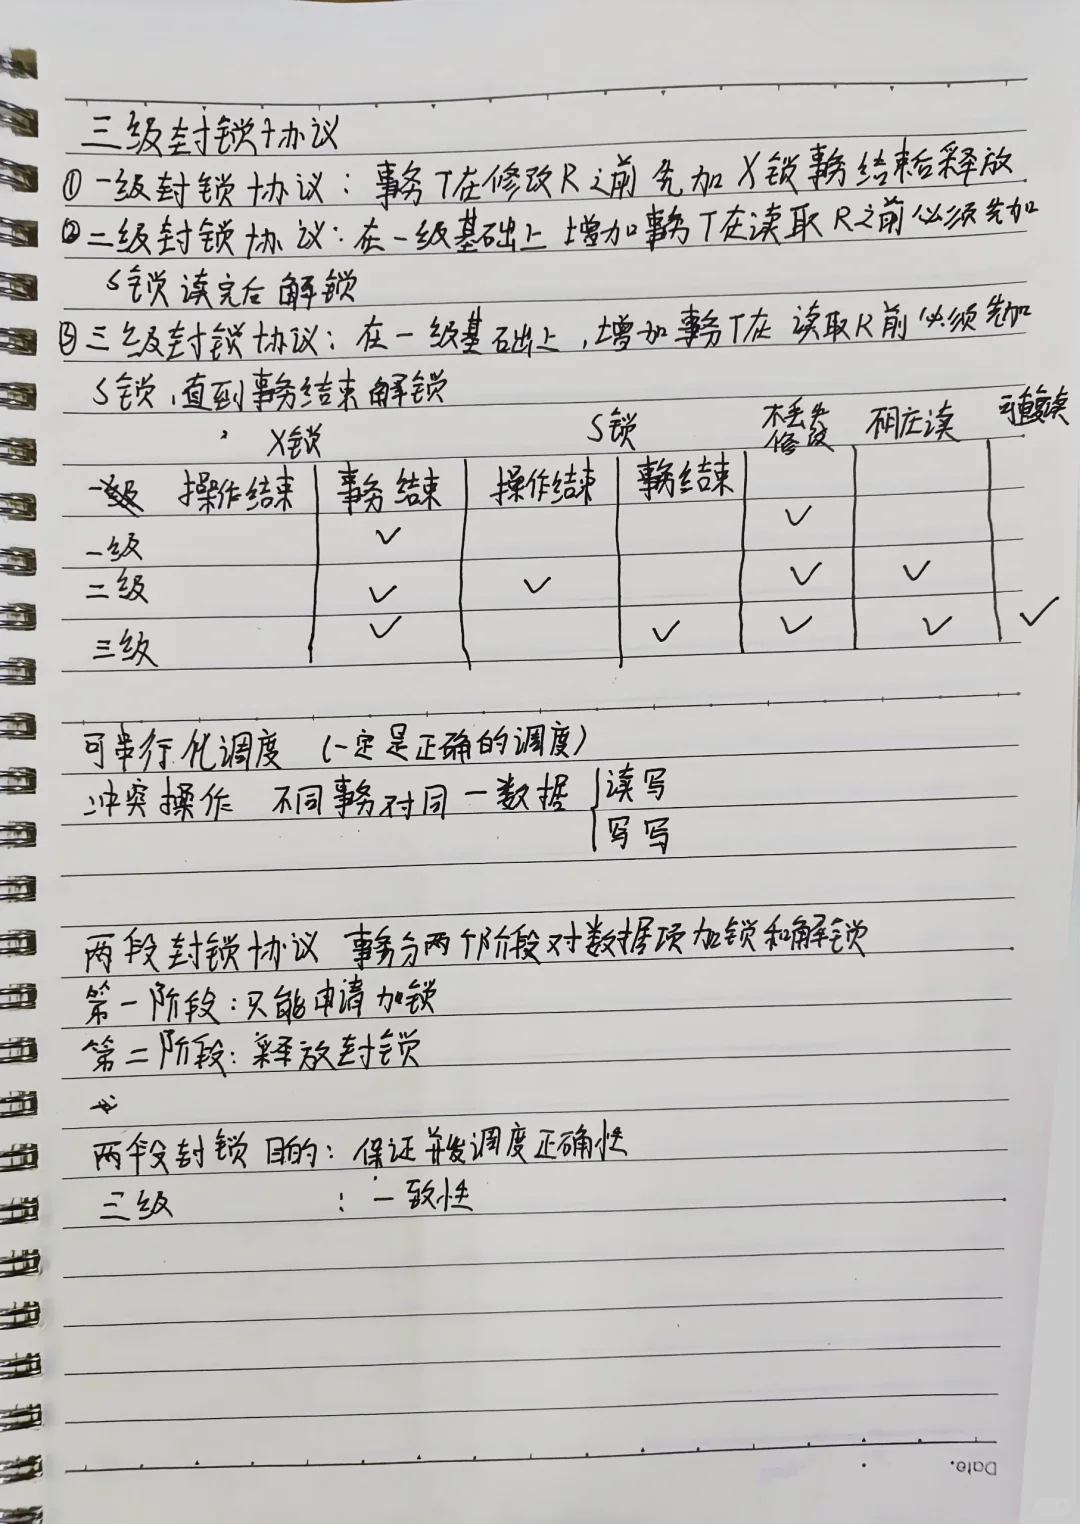 三级封锁协议
①一级封锁协议：事务T在修改R之前先加X锁事务结束后释放
②二级封锁协议：在一级基础上增加事务T在读取R之前必须先加
S锁读完后解锁
③三级封锁协议：在一级基础上，增加事务T在读取R前必须先加
S锁，直到事务结束解锁
X锁 S锁 不丢失修改 不脏读 可重复读
操作结束 事务结束 操作结束 事务结束
一级 ✓ ✓
二级 ✓ ✓ ✓ ✓
三级 ✓ ✓ ✓ ✓ ✓
可串行化调度（一定是正确的调度）
冲突操作 不同事务对同一数据 { 读写
写写
两段封锁协议 事务分两个阶段对数据项加锁和解锁
第一阶段：只能申请加锁
第二阶段：释放封锁
两段封锁目的：保证并发调度正确性
三级 ：一致性
Date.